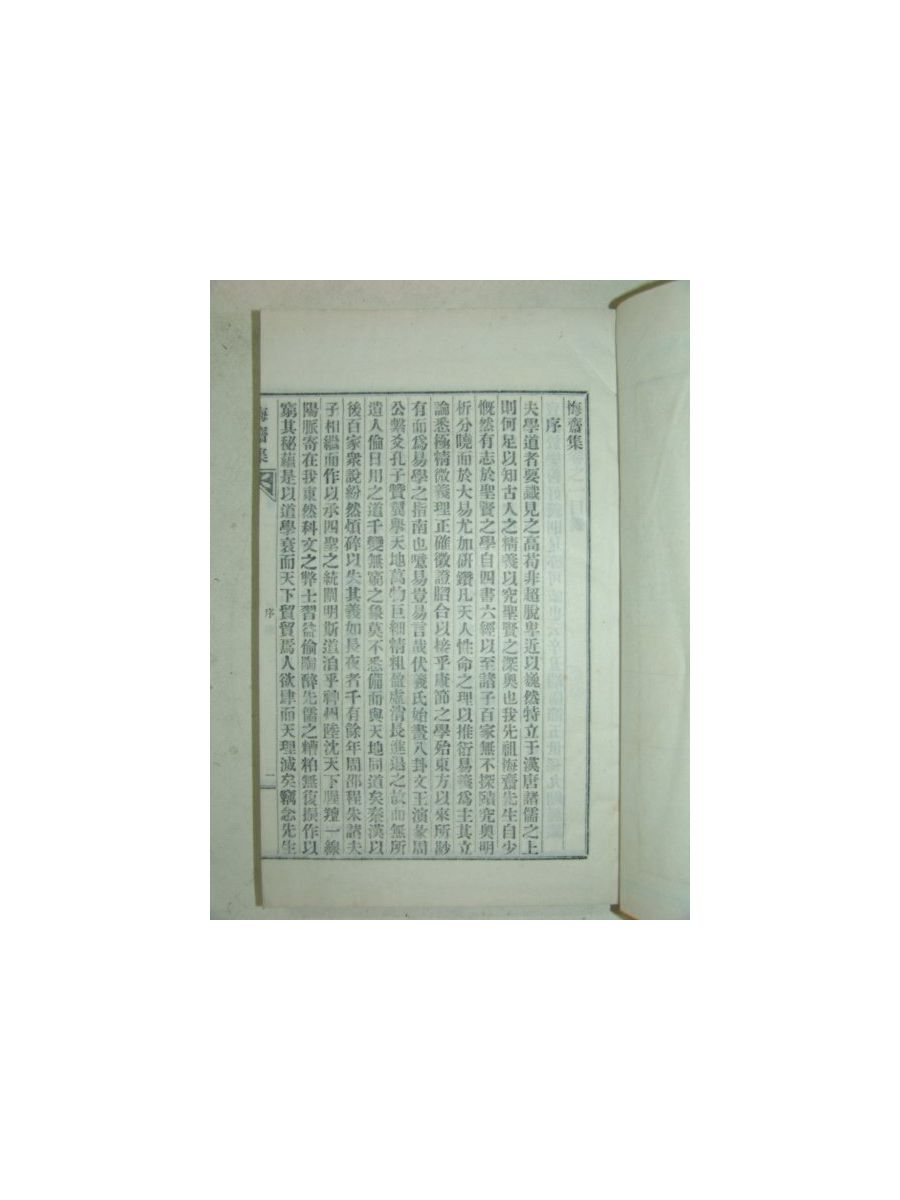 悔齋集
序
夫學道者要識見之高苟非超脫卑近以巍然特立于漢唐諸儒之上
則何足以知古人之精義以究聖賢之深奧也我先祖悔齋先生自少
慨然有志於聖賢之學自四書六經以至諸子百家無不探賾究奧明
析分曉而於大易尤加硏鑽凡天人性命之理以推衍易義爲主其立
論悉極精微義理正確徵證脗合以接乎康節之學殆東方以來所尠
有而爲易學之指南也噫易豈易言哉伏羲氏始畫八卦文王演彖周
公繫爻孔子贊翼擧天地萬物巨細精粗盈虛消長進退之故而無所
遺人倫日用之道千變無窮之象莫不悉備而與天地同道矣秦漢以
後百家衆說紛然煩碎以失其義如長夜者千有餘年周邵程朱諸夫
子相繼而作以承四聖之統闡明斯道洎乎神州陸沈天下腥羶一線
陽脈寄在我東然科文之弊士習益偷陶醉先儒之糟粕無復振作以
窮其秘蘊是以道學衰而天下貿貿焉人欲肆而天理滅矣竊念先生
悔齋集
序
一